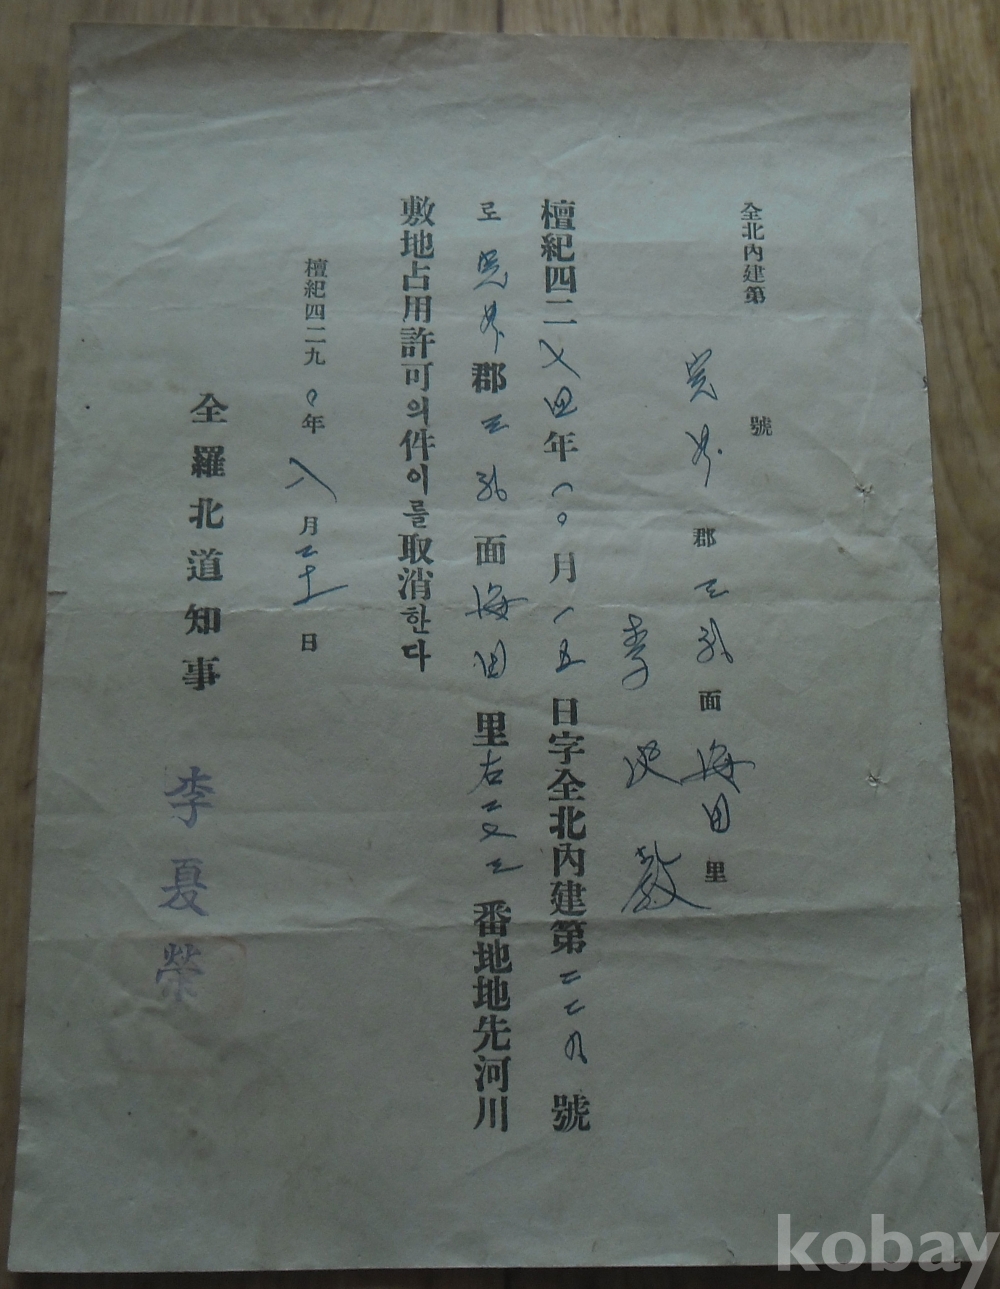 全北內建第 號
完州郡三礼面海田里
李 敎
檀紀四二七四年一〇月一五日字全北內建第二二九號
로完州郡三礼面海田里右二又三番地地先河川
敷地占用許可의件이를取消한다
檀紀四二九〇年八月二十日
全羅北道知事 李夏榮
kobay